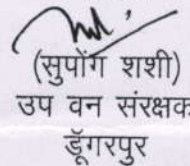 (सुपोंग शशी)
उप वन संरक्षक
डूॅंगरपुर